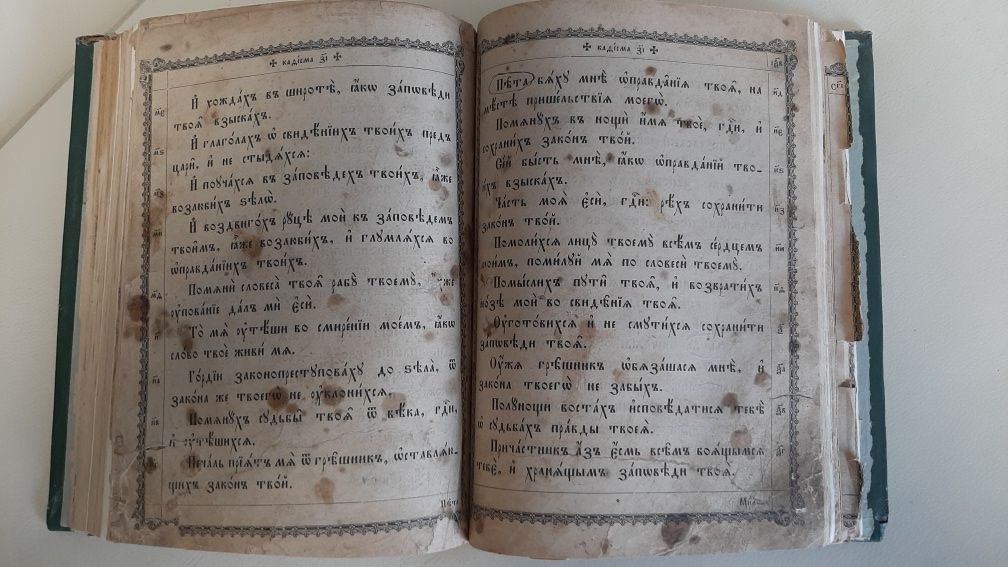 ✠ каѳїсма з҃і ✠
И҆ хождахъ въ широтѣ, ꙗ҆́кѡ за́повѣди
твоѧ̑ взыскахъ.
м҃ѕ
И҆ глаголахъ ѡ҆ свидѣ́нїихъ твои́хъ предъ
цари̑, и҆ не стыдѧ́хсѧ:
И҆ поучахсѧ въ за́повѣдехъ твои́хъ, ꙗ҆̀же
возлюбихъ ѕѣлѡ̀.
м҃и
И҆ воздвигохъ руцѣ мои̑ къ за́повѣдемъ
твои̑мъ, ꙗ҆̀же возлюбихъ, и҆ глумлѧ́хсѧ во
ѡ҆правда́нїихъ твои́хъ.
м҃ѳ
Помѧни̑ словеса̀ твоѧ̑ рабу̀ твоему̀, и҆́хже
оу҆пова́нїе далъ ми̑ є҆сѝ.
То̀ мѧ̀ оу҆тѣ́ши во смире́нїи мое́мъ, ꙗ҆́кѡ
слово твоѐ живи́ мѧ.
н҃а
Го́рдїи законопреступова́ху до ѕѣла̀, ѿ
закона же твоегѡ̀ не оу҆клони́хсѧ.
н҃в
Помѧну́хъ судьбы̑ твоѧ̑ ѿ вѣка, гдⷭ҇и,
и҆ оу҆тѣ́шихсѧ.
Печаль прїѧ́тъ мѧ̀ ѿ грѣшникъ, ѡ҆ставлѧ́ю-
щихъ зако́нъ твой.
✠ каѳїсма з҃і ✠
Пѣта бѧ́ху мнѣ̀ ѡ҆правда̑нїѧ твоѧ̑, на
мѣ́стѣ прише́льствїѧ моегѡ̀.
н҃д
Помѧну́хъ въ нощѝ и҆́мѧ твоѐ, гдⷭ҇и, и҆
сохрани́хъ зако́нъ тво́й.
н҃е
Се́й бы́сть мнѣ̀, ꙗ҆́кѡ ѡ҆правда́нїй тво-
и́хъ взыскахъ.
н҃ѕ
Ча́сть моѧ̀ є҆сѝ, гдⷭ҇и: рѣ́хъ сохрани́ти
зако́нъ тво́й.
н҃з
Помоли́хсѧ лицу̀ твоему̀ всѣ́мъ се́рдцемъ
мои́мъ, поми́луй мѧ̀ по словесѝ твоему̀.
н҃и
Помы́слихъ пути̑ твоѧ̑, и҆ возврати́хъ
но́зѣ мои̑ во свидѣ̑нїѧ твоѧ̑.
н҃ѳ
Оу҆гото́вихсѧ и҆ не смути́хсѧ сохрани́ти
за́пѡвѣди твоѧ̑.
Оу҆́жѧ грѣшникъ ѡ҆бѧза́шасѧ мнѣ̀, и҆
зако́на твоегѡ̀ не забы́хъ.
Полу́нощи воста́хъ и҆сповѣ́датисѧ тебѣ̀
ѡ҆ судьба́хъ пра́вды твоеѧ̀.
Прича́стникъ а҆́зъ є҆́смь всѣ́мъ боѧ́щымсѧ
тебє̀, и҆ хранѧ́щымъ за́пѡвѣди твоѧ̑.